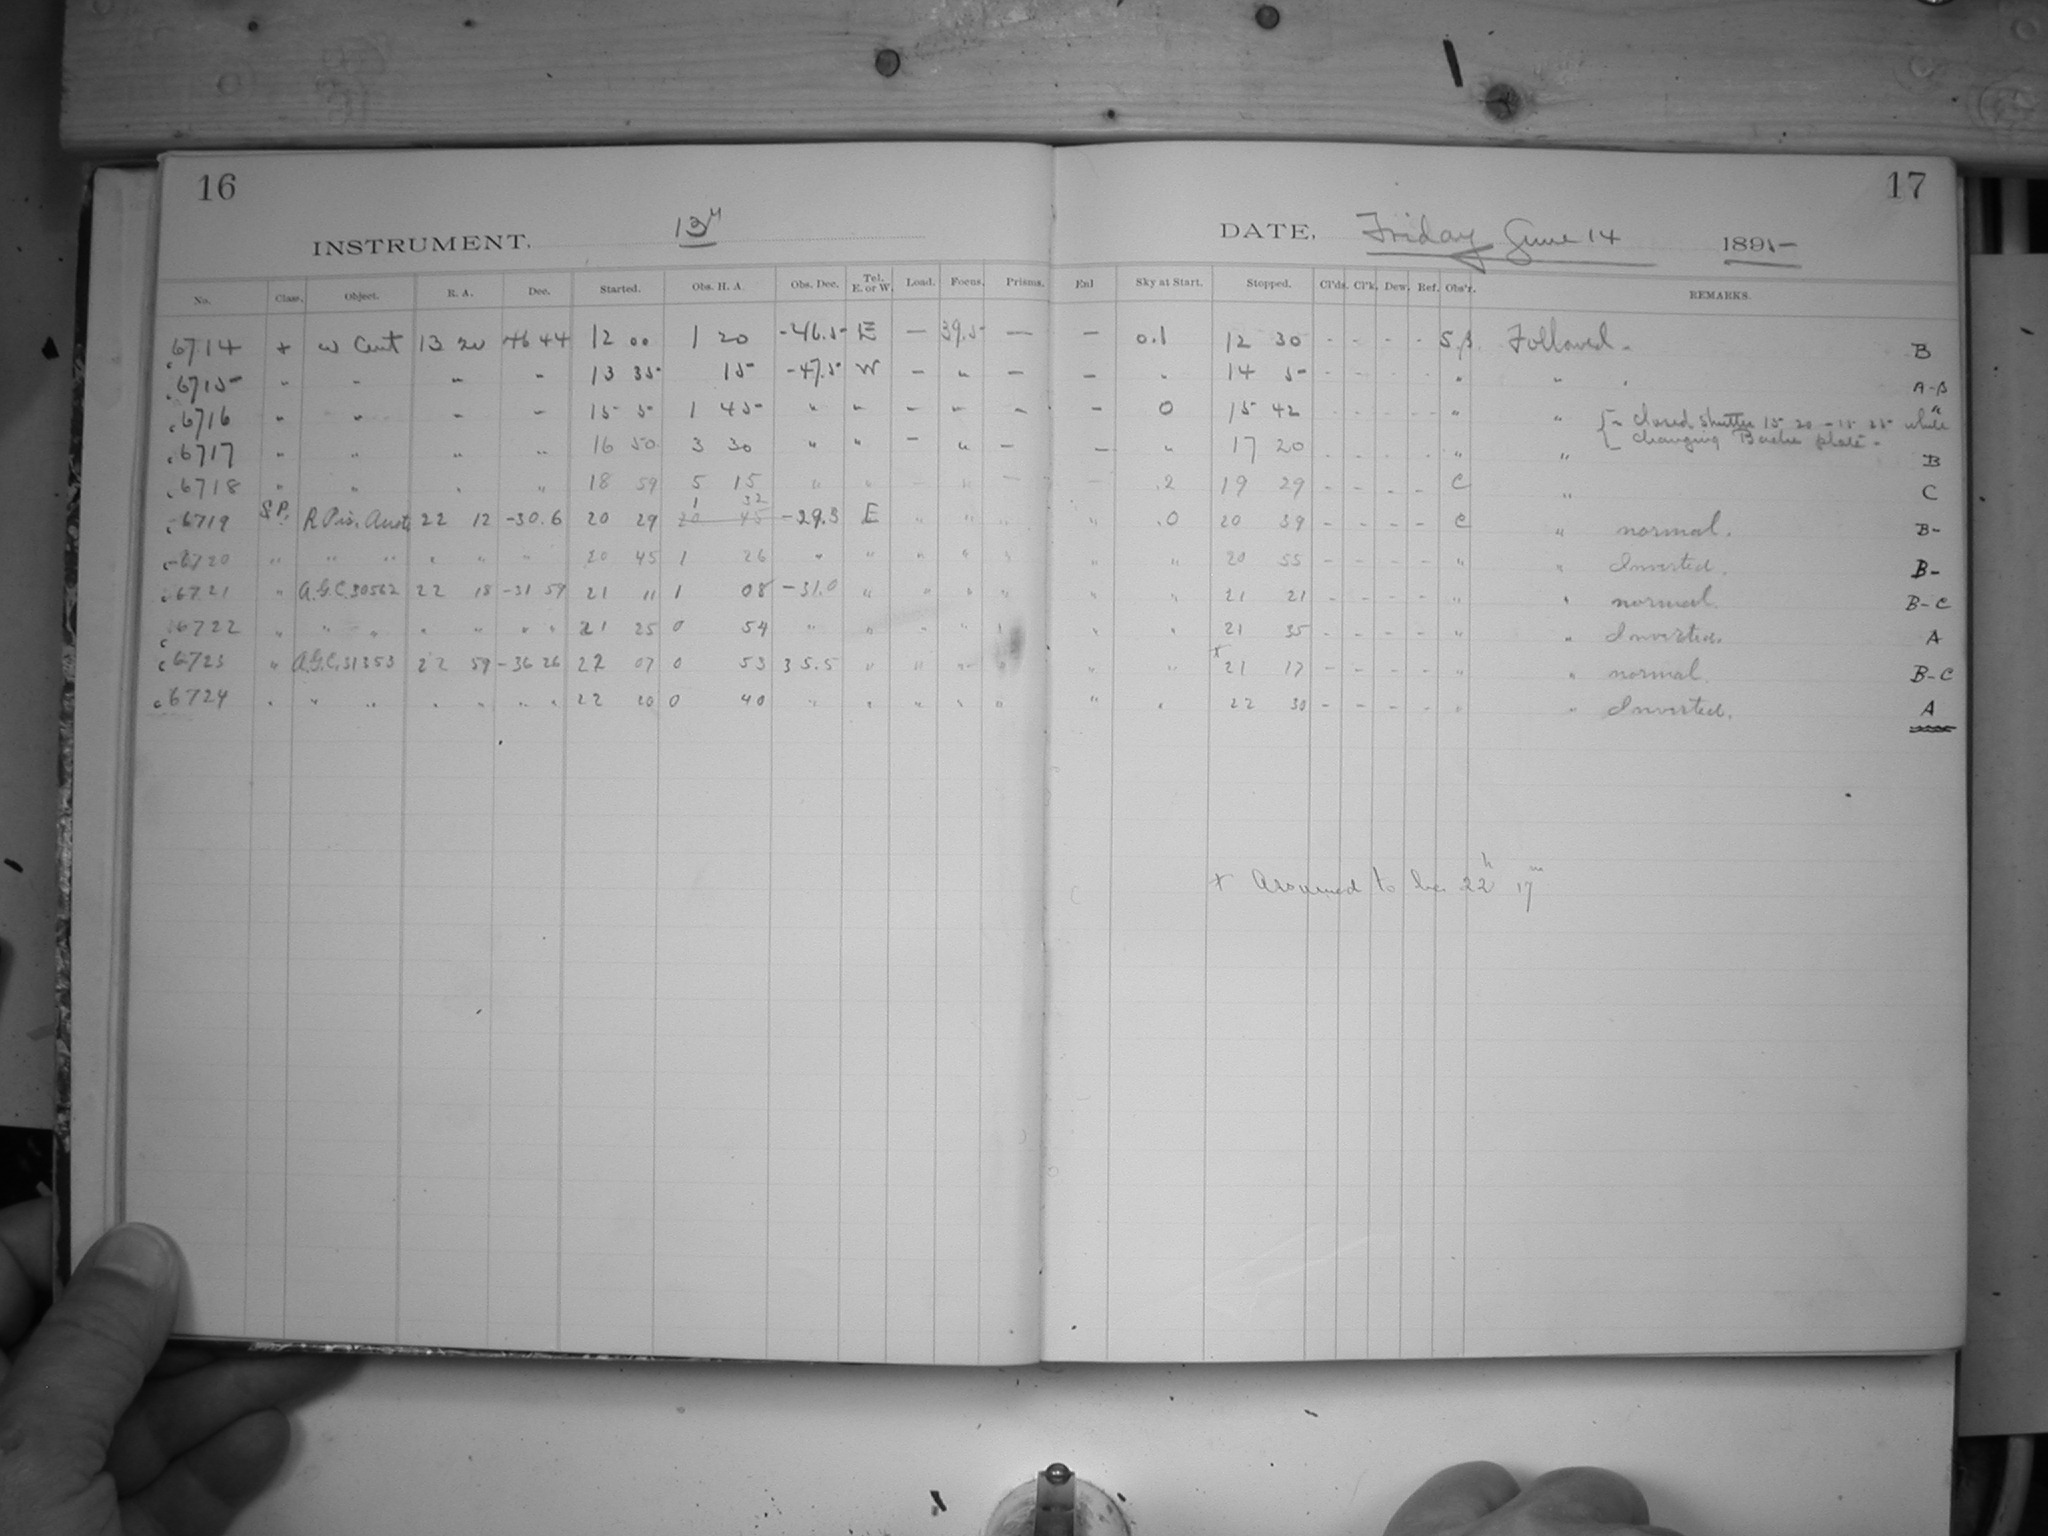 16
17
INSTRUMENT. 13"
DATE, Friday June 14 1895
No. Class. Object. R. A. Dec. Started. Obs. H. A. Obs. Dec. Tel. E. or W. Load. Focus. Prisms. Enl Sky at Start. Stopped. Cl'ds. Cl'k. Dew. Ref. Obs'r. REMARKS.
6714 + ω Cent 13 20 -46 44 12 00 1 20 -46.5 E — 39.5 — — 0.1 12 30 - - - - Followed - B
6715 " " " " 13 35 15 -47.5 W — " — — " 14 5 - - - - " " A-B
6716 " " " " 15 5 1 45 " " — " — — 0 15 42 - - - - " " { closed shutter 15 20 - 15 25 while "
changing Bache plate -
6717 " " " " 16 50 3 30 " " — " — — " 17 20 - - - - " " B
6718 " " " " 18 59 5 15 " " — " — — .2 19 29 - - - - C " C
6719 S.P. R Pis. Aust 22 12 -30.6 20 29 20 45 1 32 -29.3 E " " " " .0 20 39 - - - - C " normal. B-
6720 " " " " " " " 20 45 1 26 " " " " " " " 20 55 - - - - " " Inverted. B-
6721 " A.G.C. 30562 22 18 -31 59 21 11 1 08 -31.0 " " " " " " 21 21 - - - - " " normal. B-C
6722 " " " " " " " 21 25 0 54 " " " " " " " 21 35 - - - - " " Inverted. A
6723 " A.G.C. 31353 22 59 -36 26 22 07 0 53 35.5 " " " " " " * 21 17 - - - - " " normal. B-C
6724 " " " " " " " 22 20 0 40 " " " " " " " 22 30 - - - - " " Inverted. A
* Assumed to be 22h 17m